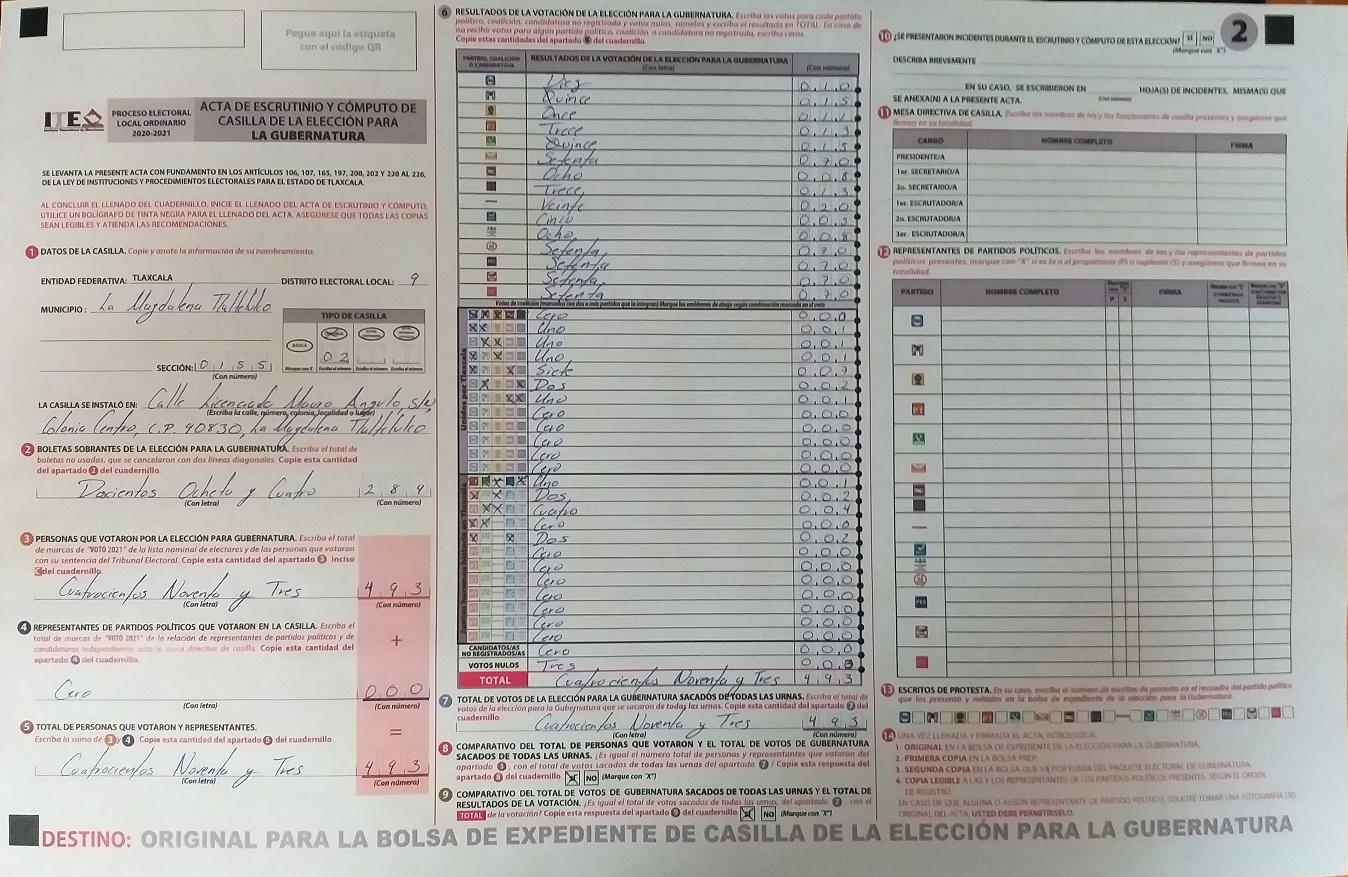 Pegue aquí la etiqueta
con el código QR
ITE
PROCESO ELECTORAL
LOCAL ORDINARIO
2020-2021
ACTA DE ESCRUTINIO Y CÓMPUTO DE
CASILLA DE LA ELECCIÓN PARA
LA GUBERNATURA
SE LEVANTA LA PRESENTE ACTA CON FUNDAMENTO EN LOS ARTÍCULOS 106, 107, 165, 197, 200, 202 Y 220 AL 226,
DE LA LEY DE INSTITUCIONES Y PROCEDIMIENTOS ELECTORALES PARA EL ESTADO DE TLAXCALA.
AL CONCLUIR EL LLENADO DEL CUADERNILLO, INICIE EL LLENADO DEL ACTA DE ESCRUTINIO Y CÓMPUTO,
UTILICE UN BOLÍGRAFO DE TINTA NEGRA PARA EL LLENADO DEL ACTA. ASEGÚRESE QUE TODAS LAS COPIAS
SEAN LEGIBLES Y ATIENDA LAS RECOMENDACIONES.
1 DATOS DE LA CASILLA. Copie y anote la información de su nombramiento.
ENTIDAD FEDERATIVA: TLAXCALA DISTRITO ELECTORAL LOCAL: 9
MUNICIPIO: La Magdalena Tlaltelulco
TIPO DE CASILLA
BÁSICA
0 2
SECCIÓN: 0 1 5 5
(Con número)
LA CASILLA SE INSTALÓ EN: Calle Licenciado Mauro Angulo, S/N,
(Escriba la calle, número, colonia, localidad o lugar)
Colonia Centro, C.P. 90830, La Magdalena Tlaltelulco
2 BOLETAS SOBRANTES DE LA ELECCIÓN PARA LA GUBERNATURA. Escriba el total de
boletas no usadas, que se cancelaron con dos líneas diagonales. Copie esta cantidad
del apartado 2 del cuadernillo.
Docientos Ocheta y Cuatro 2 8 4
(Con letra) (Con número)
3 PERSONAS QUE VOTARON POR LA ELECCIÓN PARA GUBERNATURA. Escriba el total
de marcas de "VOTÓ 2021" de la lista nominal de electores y de las personas que votaron
con su sentencia del Tribunal Electoral. Copie esta cantidad del apartado 3 inciso
C del cuadernillo.
Cuatrocientos Noventa y Tres 4 9 3
(Con letra) (Con número)
4 REPRESENTANTES DE PARTIDOS POLÍTICOS QUE VOTARON EN LA CASILLA. Escriba el
total de marcas de "VOTÓ 2021" de la relación de representantes de partidos políticos y de
candidaturas independientes ante la mesa directiva de casilla. Copie esta cantidad del
apartado 4 del cuadernillo.
+
Cero 0 0 0
(Con letra) (Con número)
5 TOTAL DE PERSONAS QUE VOTARON Y REPRESENTANTES.
Escriba la suma de 3 y 4 Copie esta cantidad del apartado 5 del cuadernillo.
=
Cuatrocientos Noventa y Tres 4 9 3
(Con letra) (Con número)
6 RESULTADOS DE LA VOTACIÓN DE LA ELECCIÓN PARA LA GUBERNATURA. Escriba los votos para cada partido
político, coalición, candidatura no registrada y votos nulos, súmelos y escriba el resultado en TOTAL. En caso de
no recibir votos para algún partido político, coalición o candidatura no registrada, escriba ceros.
Copie estas cantidades del apartado 6 del cuadernillo.
PARTIDO, COALICIÓN O CANDIDATO/A
RESULTADOS DE LA VOTACIÓN DE LA ELECCIÓN PARA LA GUBERNATURA
(Con letra) (Con número)
Diez 0 1 0
Quince 0 1 5
Once 0 1 1
Trece 0 1 3
Quince 0 1 5
Setenta 0 7 0
Ocho 0 0 8
Trece 0 1 3
Veinte 0 2 0
Cinco 0 0 5
Ocho 0 0 8
Setenta 0 7 0
Setenta 0 7 0
Setenta 0 7 0
Setenta 0 7 0
Cero 0 0 0
Uno 0 0 1
Uno 0 0 1
Uno 0 0 1
Siete 0 0 7
Dos 0 0 2
Uno 0 0 1
Cero 0 0 0
Cero 0 0 0
Cero 0 0 0
Cero 0 0 0
Cero 0 0 0
Uno 0 0 1
Dos 0 0 2
Cuatro 0 0 4
Cero 0 0 0
Dos 0 0 2
Cero 0 0 0
Cero 0 0 0
Cero 0 0 0
Cero 0 0 0
Cero 0 0 0
Cero 0 0 0
Cero 0 0 0
CANDIDATOS/AS NO REGISTRADOS/AS Cero 0 0 0
VOTOS NULOS Tres 0 0 3
TOTAL Cuatrocientos Noventa y Tres 4 9 3
7 TOTAL DE VOTOS DE LA ELECCIÓN PARA LA GUBERNATURA SACADOS DE TODAS LAS URNAS. Escriba el total de
votos de la elección para la Gubernatura que se sacaron de todas las urnas. Copie esta cantidad del apartado 7 del
cuadernillo.
Cuatrocientos Noventa y Tres 4 9 3
(Con letra) (Con número)
8 COMPARATIVO DEL TOTAL DE PERSONAS QUE VOTARON Y EL TOTAL DE VOTOS DE GUBERNATURA
SACADOS DE TODAS LAS URNAS. ¿Es igual el número total de personas y representantes que votaron del
apartado 5, con el total de votos sacados de todas las urnas 7? Copie esta respuesta del
apartado 8 del cuadernillo NO (Marque con "X")
9 COMPARATIVO DEL TOTAL DE VOTOS DE GUBERNATURA SACADOS DE TODAS LAS URNAS Y EL TOTAL DE
RESULTADOS DE LA VOTACIÓN. ¿Es igual el total de votos sacados de todas las urnas, del apartado 7 con el
TOTAL de la votación? Copie esta respuesta del apartado 9 del cuadernillo. NO (Marque con "X")
10 ¿SE PRESENTARON INCIDENTES DURANTE EL ESCRUTINIO Y CÓMPUTO DE ESTA ELECCIÓN? SÍ NO
(Marque con "X")
2
DESCRIBA BREVEMENTE
EN SU CASO, SE ESCRIBIERON EN HOJA(S) DE INCIDENTES, MISMA(S) QUE
SE ANEXA(N) A LA PRESENTE ACTA.
11 MESA DIRECTIVA DE CASILLA. Escriba los nombres de las y los funcionarios de casilla presentes y asegúrese que
firmen en su totalidad.
CARGO NOMBRE COMPLETO FIRMA
PRESIDENTE/A
1er. SECRETARIO/A
2o. SECRETARIO/A
1er. ESCRUTADOR/A
2o. ESCRUTADOR/A
3er. ESCRUTADOR/A
12 REPRESENTANTES DE PARTIDOS POLÍTICOS. Escriba los nombres de las y los representantes de partidos
políticos presentes, marque con "X" si es la o el propietario (P) o suplente (S) y asegúrese que firmen en su
totalidad.
PARTIDO NOMBRE COMPLETO P S FIRMA
13 ESCRITOS DE PROTESTA. En su caso, escriba el número de escritos de protesta en el recuadro del partido político
que los presentó y métalos en la bolsa de expediente de la elección para la Gubernatura.
14 UNA VEZ LLENADA Y FIRMADA EL ACTA, INTRODUZCA:
1. ORIGINAL EN LA BOLSA DE EXPEDIENTE DE LA ELECCIÓN PARA LA GUBERNATURA.
2. PRIMERA COPIA EN LA BOLSA PREP.
3. SEGUNDA COPIA EN LA BOLSA QUE VA POR FUERA DEL PAQUETE ELECTORAL DE GUBERNATURA.
4. COPIA LEGIBLE A LAS Y LOS REPRESENTANTES DE LOS PARTIDOS POLÍTICOS PRESENTES, SEGÚN EL ORDEN
DE REGISTRO.
EN CASO DE QUE ALGUNA O ALGÚN REPRESENTANTE DE PARTIDO POLÍTICO, SOLICITE TOMAR UNA FOTOGRAFÍA DEL
ORIGINAL DEL ACTA, USTED DEBE PERMITÍRSELO.
DESTINO: ORIGINAL PARA LA BOLSA DE EXPEDIENTE DE CASILLA DE LA ELECCIÓN PARA LA GUBERNATURA